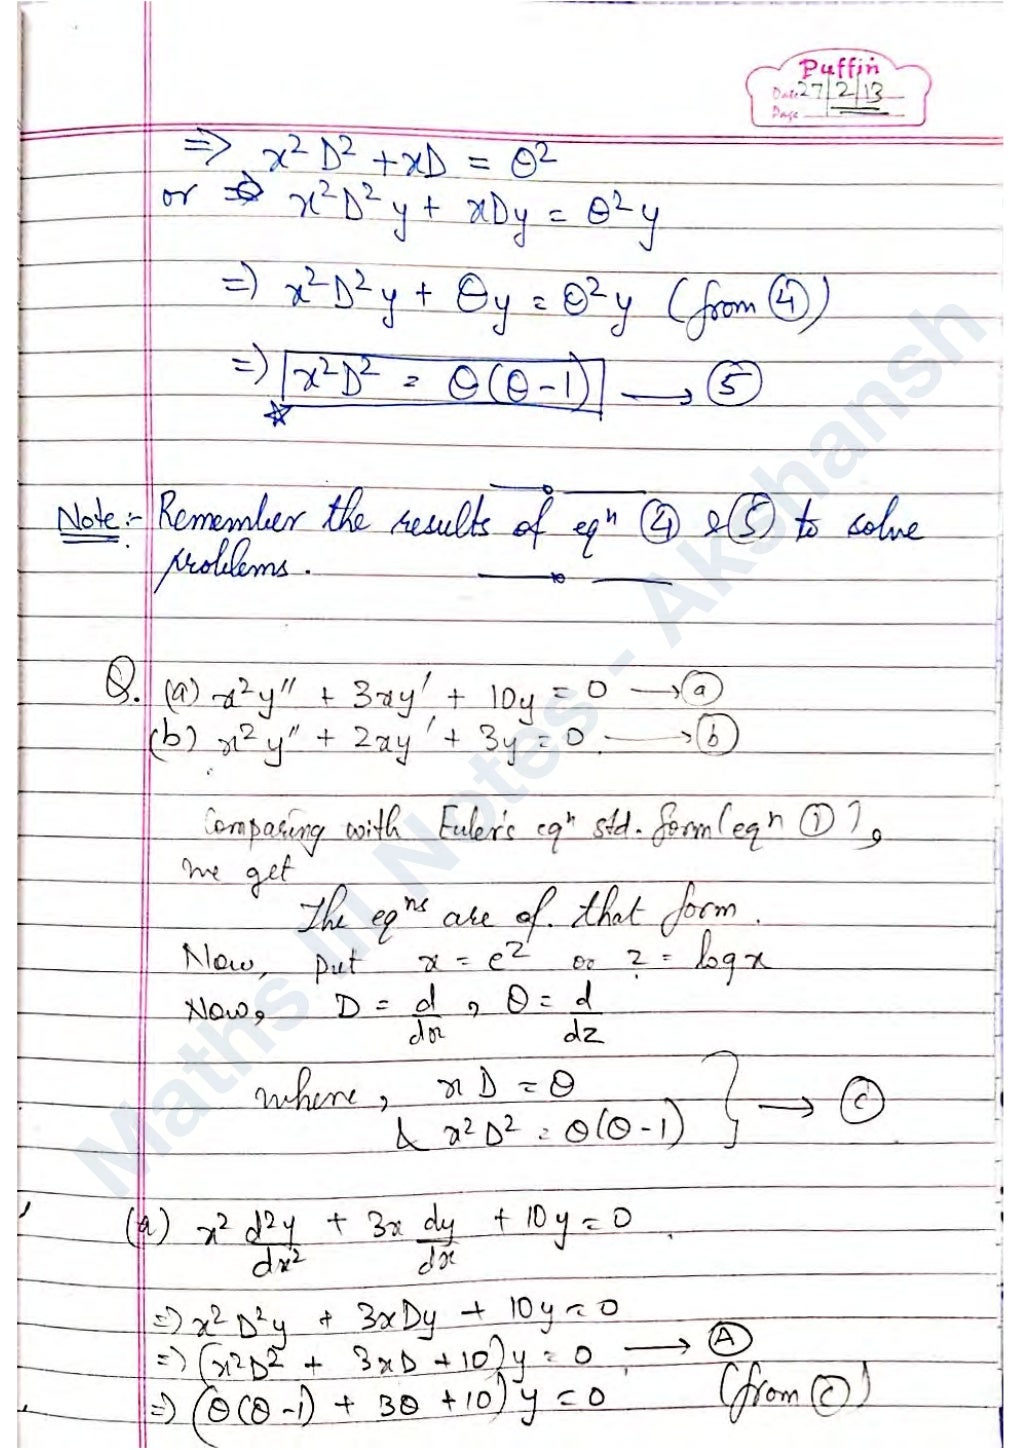 Puffin
Date 27/2/13
Page
=> x² D² + xD = θ²
or => x²D²y + xDy = θ²y
=> x²D²y + θy = θ²y (from ④)
=> x²D² = θ(θ-1) → ⑤
Note:- Remember the results of eqⁿ ④ & ⑤ to solve
problems.
Q. (a) x²y'' + 3xy' + 10y = 0 → ⓐ
(b) x²y'' + 2xy' + 3y = 0 → ⓑ
Comparing with Euler's eqⁿ std. form (eqⁿ ①),
we get
The eqⁿˢ are of that form.
Now, put x = e^z or z = log x
Now, D = d/dx, θ = d/dz
where, xD = θ
& x²D² = θ(θ-1) } → ⓒ
(a) x² d²y/dx² + 3x dy/dx + 10y = 0
=> x²D²y + 3xDy + 10y = 0
=> (x²D² + 3xD + 10)y = 0 → Ⓐ
=> (θ(θ-1) + 3θ + 10)y = 0 (from ⓒ)
Maths III Notes - Akshansh